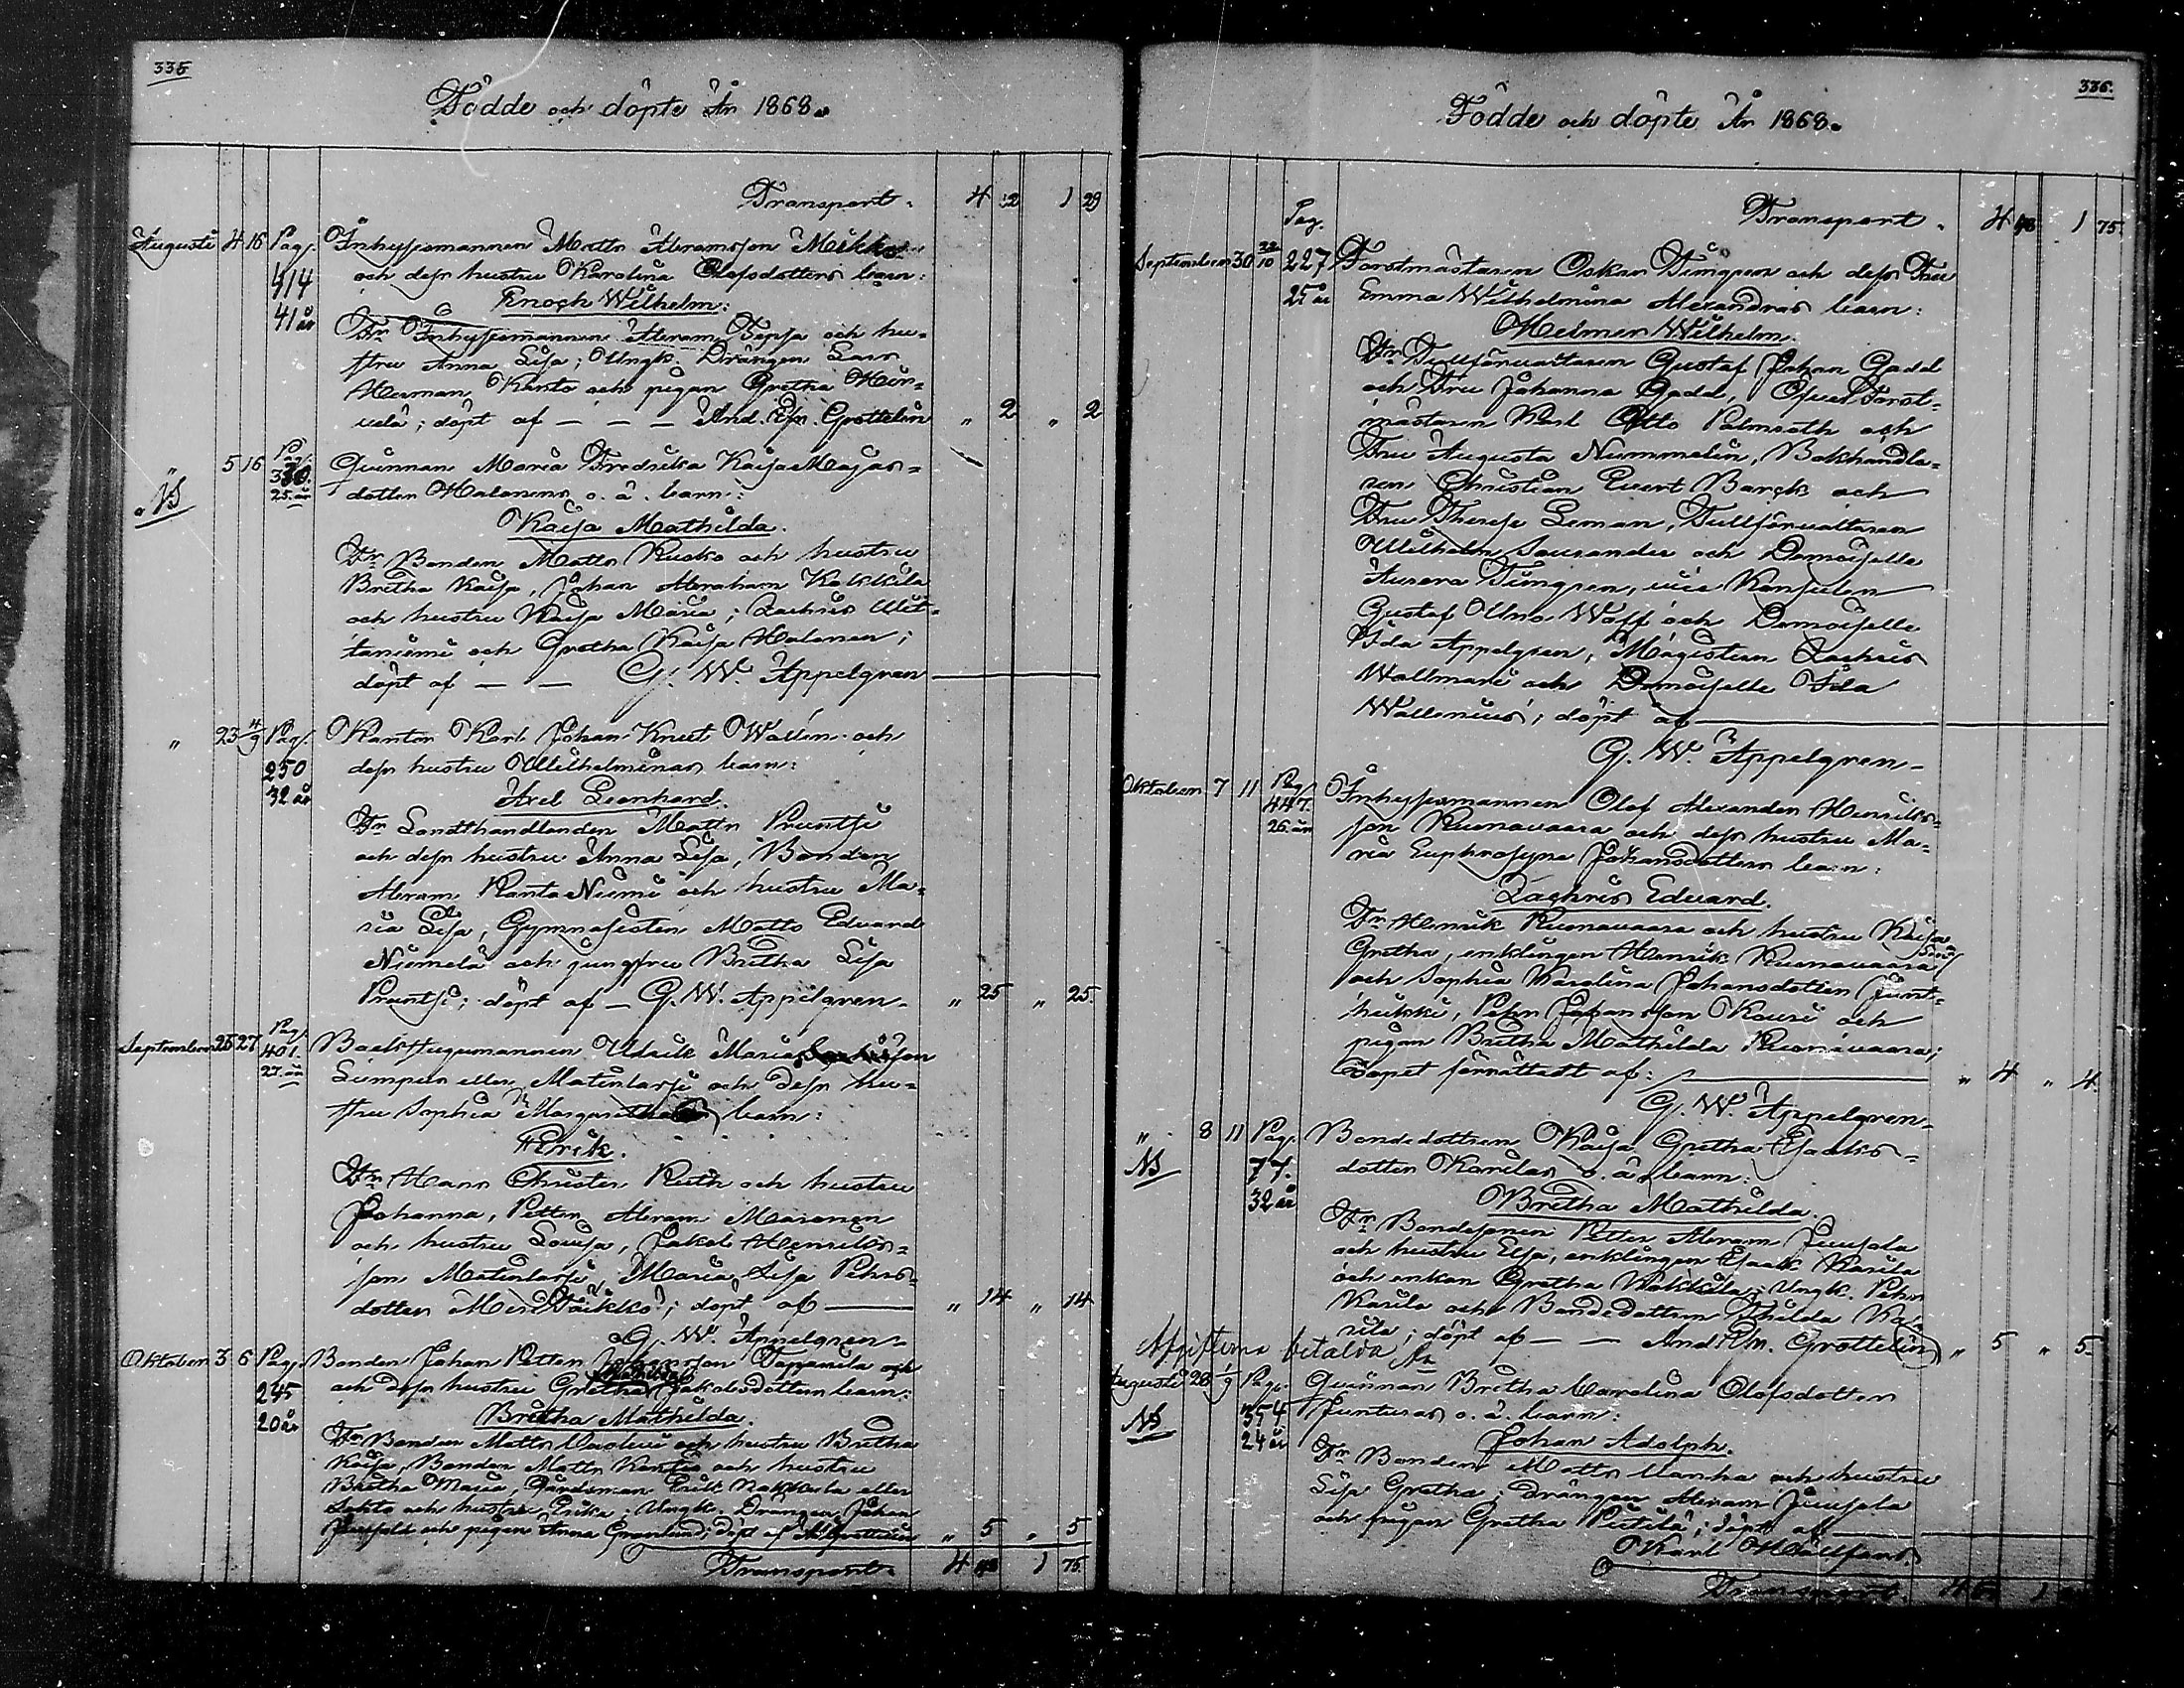 335
Födde och döpte År 1868.
Transport. 4 1 29
Augusti 4 16 Pag. Inhysesmannen Matts Abramsson Mikko
414 och dess hustru Karolina Olofsdotters barn:
41 år Enoch Wilhelm:
Fr Inhysesmannen Abram Seppä och hu-
stru Anna Lisa; Ungk. Drängen Lars
Herman Kanto och pigan Gretha
; döpt af — — — And. Em. Grottelin " 2 " 2
" 5 16 Pag. Qvinnan Maria Fredrika KaisaMajas-
NS 25 år dotter Halonens o. ä. barn:
Kaisa Mathilda.
Fr Bonden Matts Rusko och hustru
Bretha Kaisa, Johan Abraham Kokkila
och hustru Kaisa Maria; Zachris Uit-
taniemi och Gretha Kaisa Halonen;
döpt af — — G. W. Appelgren
" 23 4/9 Pag. Kantor Karl Johan Knut Wallin och
250 dess hustru Wilhelminas barn:
32 år Axel Leonhard.
Fr Landthandlanden Matts Pruntsi
och dess hustru Anna Lisa, Bonden
Abram RantaNiemi och hustru Ma-
ria Lisa, Gymnasisten Matts Edvard
Niemelä och jungfru Bretha Lisa
Pruntsi; döpt af — G. W. Appelgren. " 25 " 25.
September 25 27 Pag. Backstugumannen Udrik Maria son
401. Limpus eller Matinlassi och dess hu-
27 år stru Sophia Margaretha barn:
Erik.
Fr Hans Christer Ruth och hustru
Johanna, Petter Abram Maranen
och hustru Lovisa, Jakob Henriks-
son Matinlassi, Maria Lisa Pehrs-
dotter ; döpt af —— " 14 " 14
G. W. Appelgren.
Oktober 3 6 Pag. Bonden Johan Petter Johansson Tapanila och
245 och dess hustru Gretha Jakobsdotters barn:
20 år Bretha Mathilda.
Fr Bonden Matts och hustru Bretha
Kaisa, Bonden Matts och hustru
Bretha Maria, Gårdsman Erik Nakkula eller
och hustru Erika; Ungk. Drängen Johan
och pigan Anna Granlund; döpt af Grottelin " 5 " 5
Transport. 4 1 75.
336.
Födde och döpte År 1868.
Transport. 4 1 75.
Pag.
September 30 10 227 Forstmästaren Oskar Timgren och dess Fru
25 år Emma Wilhelmina Alexandras barn:
Helmer Wilhelm.
Fr Tullförvaltaren Gustaf Johan Gadd
och Fru Johanna Gadd, Öfver Forst-
mästaren Karl Otto Palmroth och
Fru Augusta Nummelin, Bokhandla-
ren Christian Evert Barck och
Fru Therese Leman, Tullförvaltaren
Wilhelm Saurander och Demoiselle
Aurora Timgren, vice Konsulen
Gustaf Uno Wolff och Demoiselle
Ida Appelgren, Magistern Zachris
Wallmark och Demoiselle Ida
Wallenius; döpt af
G. W. Appelgren.
Oktober 7 11 Pag. Inhysesmannen Olof Alexander Henriks-
447. son Kuonavaara och dess hustru Ma-
26 år ria Euphrosyne Johansdotters barn:
Zachris Edvard.
Fr Henrik Kuonavaara och hustru Kaisa
Gretha, enklingen Henrik Kuonavaara
och Sophia Karolina Johansdotter Junt-
, Pehr Johansson Kouri och
pigan Bretha Mathilda Kuonavaara;
Dopet förrättadt af: " 4 " 4.
G. W. Appelgren.
" 8 11 Pag. Bondedottren Kaisa Gretha Esaaks-
NS 77. dotter Karilas o. ä. barn:
32 år Bretha Mathilda.
Fr Bondesonen Petter Abram Juusola
och hustru Elsa, enklingen Esaak Karila
och enkan Gretha; Ungk. Pehr
Karila och Bondedottren Thilda Ka-
rila; döpt af — — And. Em. Grottelin " 5 " 5.
Afgifterna betalda
Augusti 28 /9 Pag. Qvinnan Bretha Carolina Olofsdotter
NS 354 Junturas o. ä. barn:
24 år Johan Adolph.
Fr Bonden Matts Vanha och hustru
Lisa Gretha; drängen Abram Juusola
och pigan Gretha; döpt af
Karl Hällfors.
Transport.